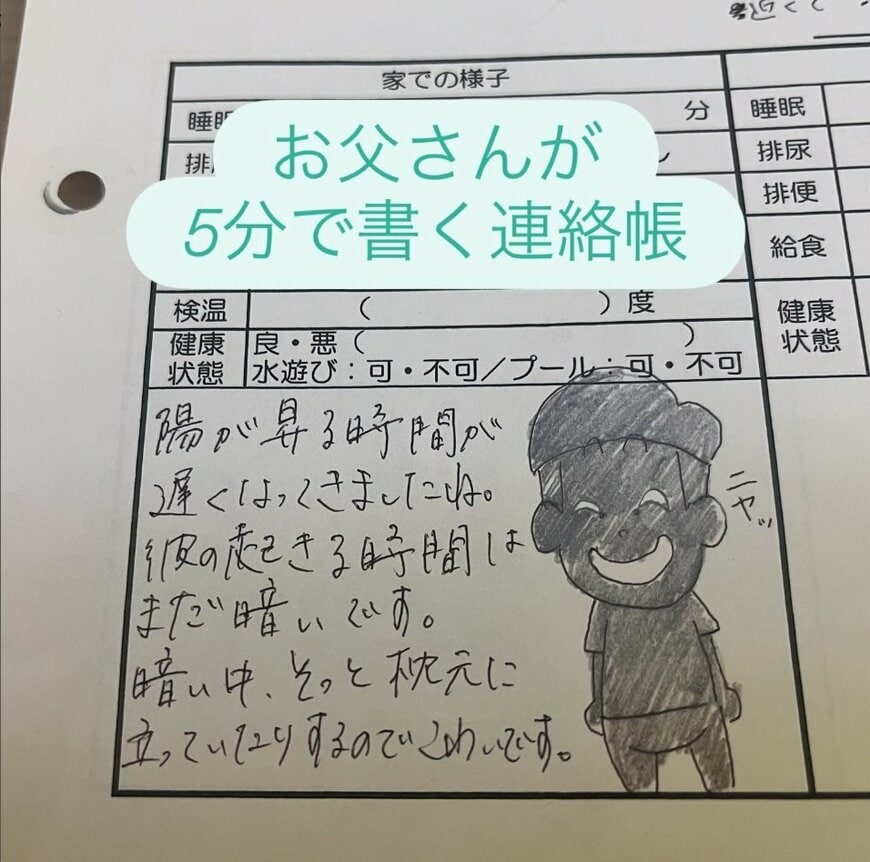 家での様子
分
睡眠
お父さんが
5分で書く連絡帳
排尿
排便
給食
検温 ( )度
健康状態
良・悪( )
水遊び：可・不可／プール：可・不可
健康状態
陽が昇る時間が
遅くなってきましたね。
彼の起きる時間は
まだ暗いです。
暗い中、そっと枕元に
立っていたりするのでこわいです。
ニヤッ